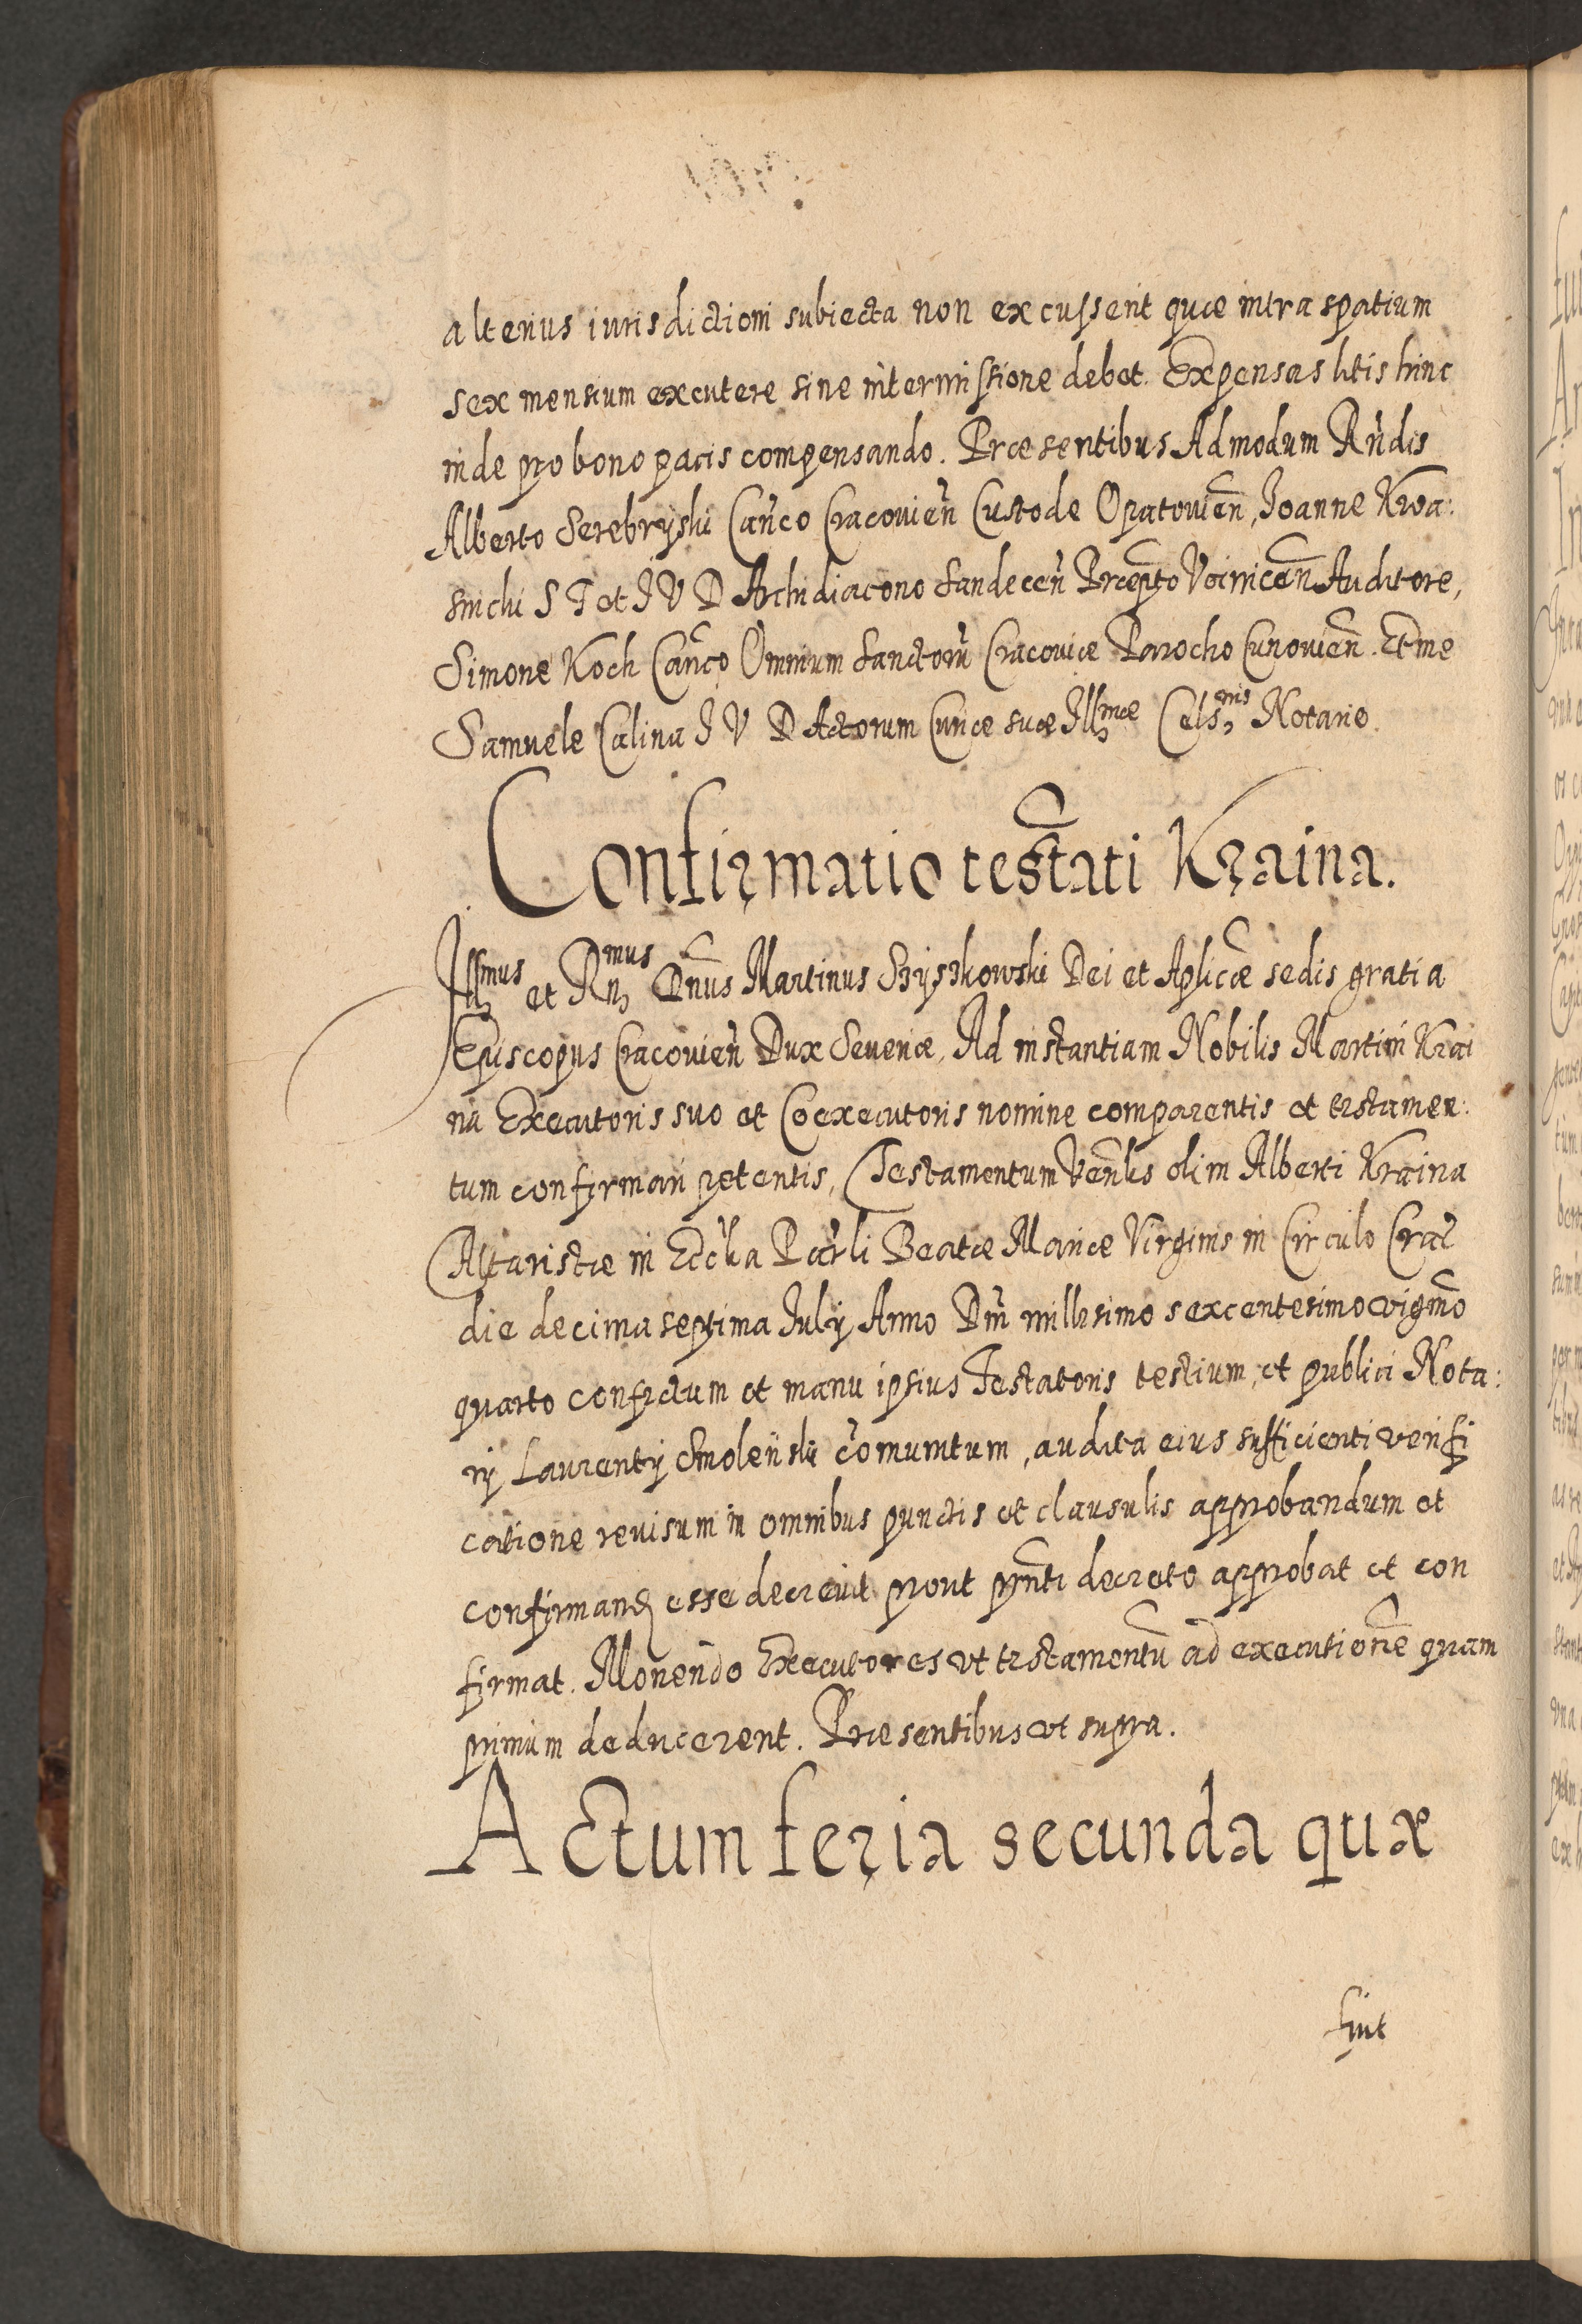 alterius iurisdictioni subiecta non excusserit quæ intra spatium
sex mensium excutere sine intermissione debet. Expensas litis hinc
inde pro bono pacis compensando. Præsentibus Admodum Rn̄dis
Alberto Serebryski Can̄co Cracouien̄ Custode Opatouien̄, Joanne Kwa:
snicki S T et J V D Archidiacono Sandecen̄ Præpto Voinicen̄ Auditore,
Simone Koch Can̄co Omnium Sanctorū Cracouiæ Parocho Cunouien̄. Et me
Samuele Calina J V D Actorum Curiæ suæ Illmæ Celsnis Notario.
Confirmatio testāti Kraina.
Illmus et Rnmus Dn̄us Martinus Szyszkowski Dei et Aplicæ sedis gratia
Episcopus Cracouien̄ Dux Seueriæ, Ad instantiam Nobilis Martini Krai
na Executoris suo et Coexecutoris nomine comparentis et testamen:
tum confirmari petentis, Testamentum Ven̄lis olim Alberti Kraina
Altaristæ in Eccl̄ia Par̄li Beatæ Mariæ Virginis in Circulo Crac̄
die decima septima Julij Anno Dn̄i millesimo sexcentesimo vigmō
quarto confectum et manu ipsius Testatoris testium, et publici Nota:
rij Laurentij Smolenski com̄unitum, audita eius sufficienti verifi
catione reuisum in omnibus punctis et clausulis approbandum et
confirmand esse decreuit prout pn̄ti decreto approbat et con
firmat. Monendo Executores vt testamentū ad executionē quam
primum deducerent. Præsentibus vt supra.
Actum feria secunda quæ
fuit